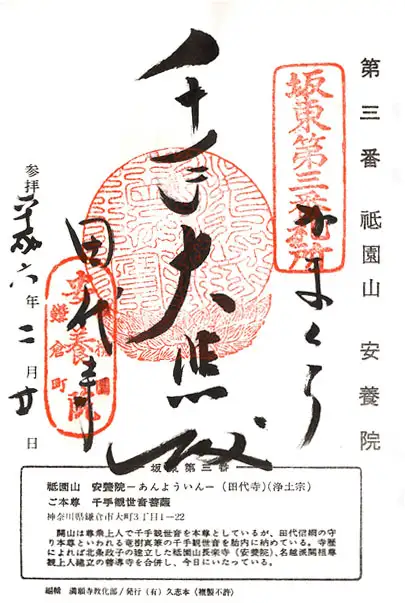 第三番 祗園山 安養院
坂東第三番札所
かまくら
千手大悲殿
田代寺
安養院
鎌倉
町
参拝 平成 六 年 二 月 廿 日
坂東第三番
祗園山 安養院−あんよういん−(田代寺)(浄土宗)
ご本尊 千手観世音菩薩
神奈川県鎌倉市大町3丁目1−22
開山は尊乗上人で千手観世音を本尊としているが、田代信綱の守
り本尊といわれる竜樹真筆の千手観世音を胎内に納めている。寺歴
によれば北条政子の建立した祗園山長楽寺(安養院)、名越派開祖尊
観上人建立の善導寺を合併し、今日にいたっている。
編輯 満願寺教化部/発行(有)久志本(複製不許)